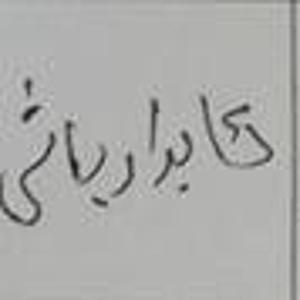 کابدار باشی